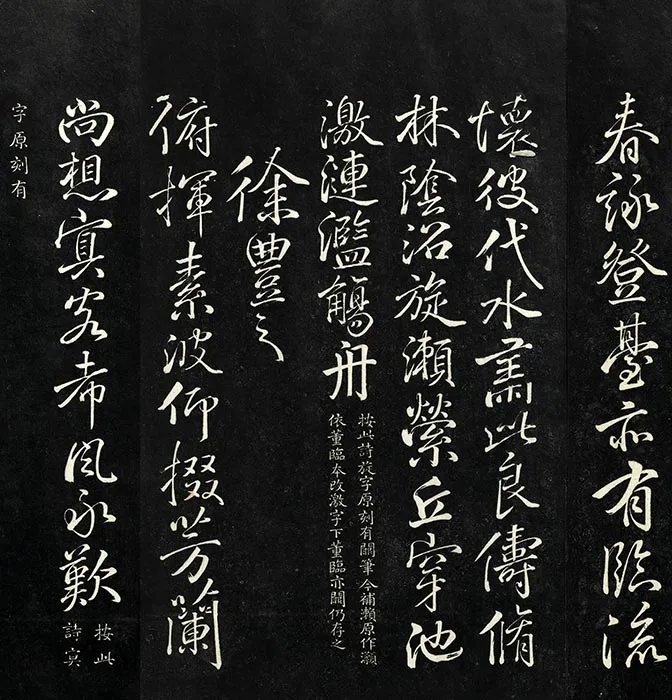 春詠登臺亦有臨流
懷彼代水肅此良儔脩
林陰沼旋瀨縈丘穿池
激漣濫觴舟
按此詩旋字原刻有闕筆今補瀨原作
依董臨本改激字下董臨亦闕仍存之
徐豐之
俯揮素波仰掇芳蘭
尚想寘客希風永歎
按此
詩寘
字原刻有